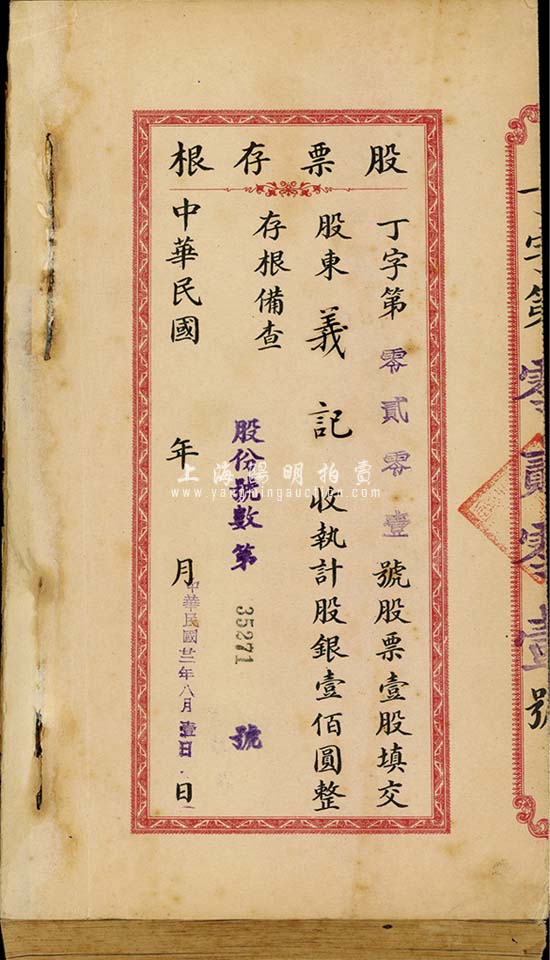 股票存根
丁字第零貳零壹號股票壹股填交
股東義記收執計股銀壹佰圓整
存根備查
股份號數第35271號
中華民國年月日
中華民國廿二年八月壹日
丁字第零貳零壹號
上海陽明拍賣
www.yangmingauction.com